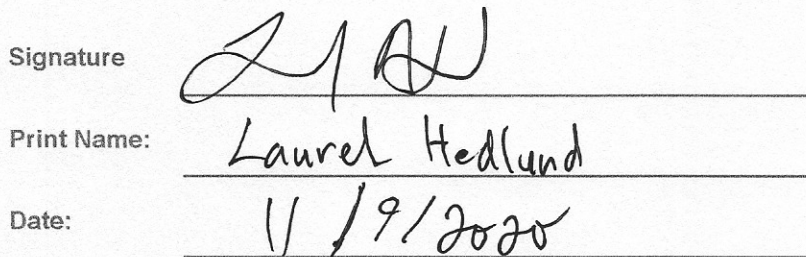 Signature
Print Name: Laurel Hedlund
Date: 11/9/2020